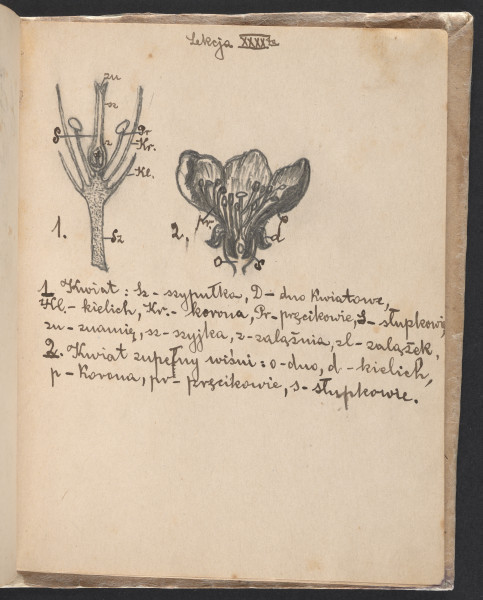 Lekcja XXXXta
zn
sz
S
Pr
Kr.
z
Kl.
1.
Sz
2.
pr
p
d
o
s
1 Kwiat: Sz - szypułka, D - dno kwiatowe,
Kl. - kielich, Kr. - korona, Pr - pręcikowie, S - słupkowie,
zn - znamię, sz - szyjka, z - zalążnia, zl - zalążek,
2. Kwiat zupełny wiśni: o - dno, d - kielich,
p - Korona, pr - pręcikowie, s - słupkowie.